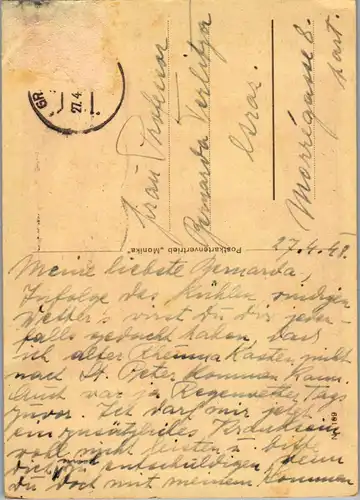 GR
27.4
Frau Professor
Bernarda Terlitza
Graz.
Morrégasse 8.
part.
Postkartenvertrieb „Monika"
27.4.48.
Meine liebste Bernarda,
Infolge des kühlen, windigen
Wetters wirst du dir jeden-
falls gedacht haben, dass
ich alter Kasten, nicht
nach St. Peter kommen kann.
Auch war ja Regenwetter tags
zuvor. Ich darf mir jetzt
ein zusätzliches
wohl nicht leisten u. bitte
dich, mich entschuldigen, denn
du doch mit meinem Kommen
89